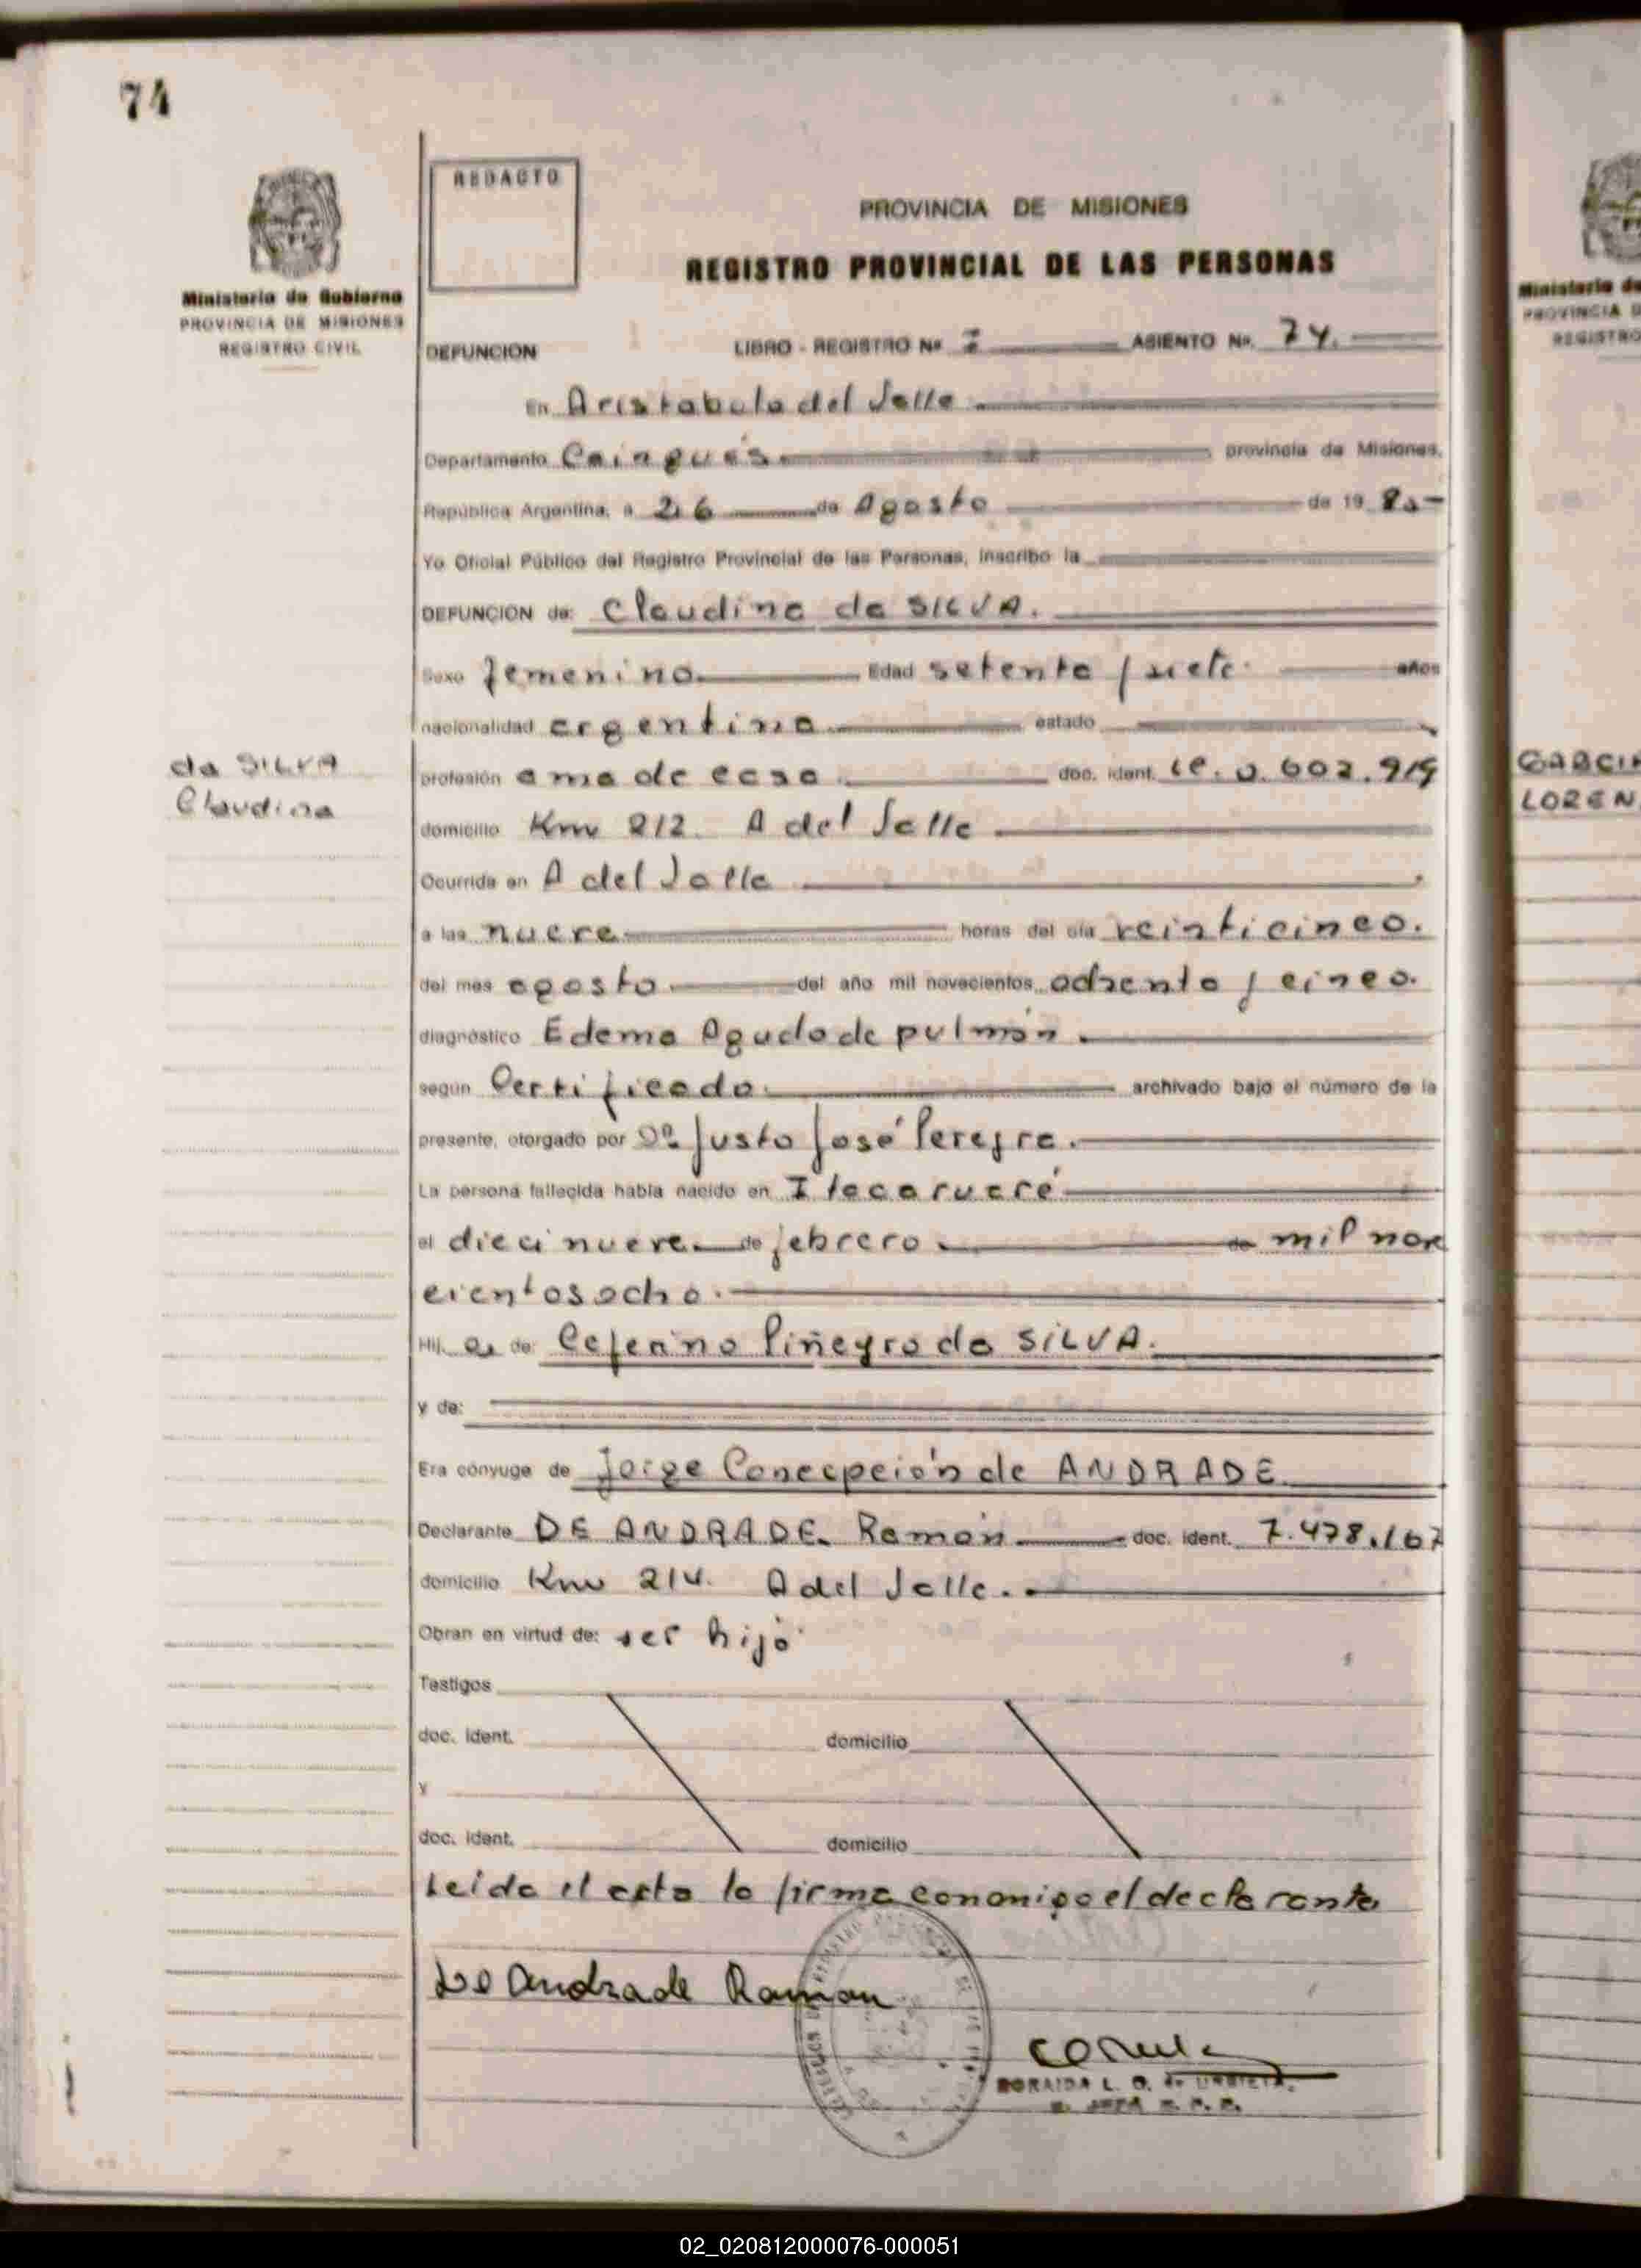 74
REDACTO
PROVINCIA DE MISIONES
REGISTRO PROVINCIAL DE LAS PERSONAS
Ministerio de Gobierno
PROVINCIA DE MISIONES
REGISTRO CIVIL
DEFUNCION LIBRO - REGISTRO Nº ASIENTO Nº. 74.
En Aristobulo del Valle
Departamento Cainguás provincia de Misiones.
República Argentina, a 26 de Agosto de 19
Yo Oficial Público del Registro Provincial de las Personas, inscribo la
DEFUNCION de: Claudina da SILVA.
Sexo femenino Edad setenta y siete años
nacionalidad argentina estado
da SILVA
Claudina
profesión ama de casa doc. ident. 
domicilio Km 212. A del Valle
Ocurrida en A del Valle
a las nueve horas del día veinticinco.
del mes agosto del año mil novecientos ochenta y cinco.
diagnóstico Edema Agudo de pulmón.
según Certificado archivado bajo el número de la
presente, otorgado por Dº Justo José Pereyra.
La persona fallecida había nacido en Itacaruaré
el diecinueve de febrero de mil nove
cientos ocho.
Hij a de: Ceferino Piñeyro da SILVA.
y de:
Era cónyuge de Jorge Concepción de ANDRADE
Declarante DE ANDRADE Ramón doc. ident. 7.478.167
domicilio Km 214. A del Valle.
Obran en virtud de: ser hijo
Testigos
doc. ident. domicilio
y
doc. ident. domicilio
Leída el acta la firma conmigo el declarante
De Andrade Ramon
ZORAIDA L. O. de URBIETA
GARCIA
LOREN
02_020812000076-000051